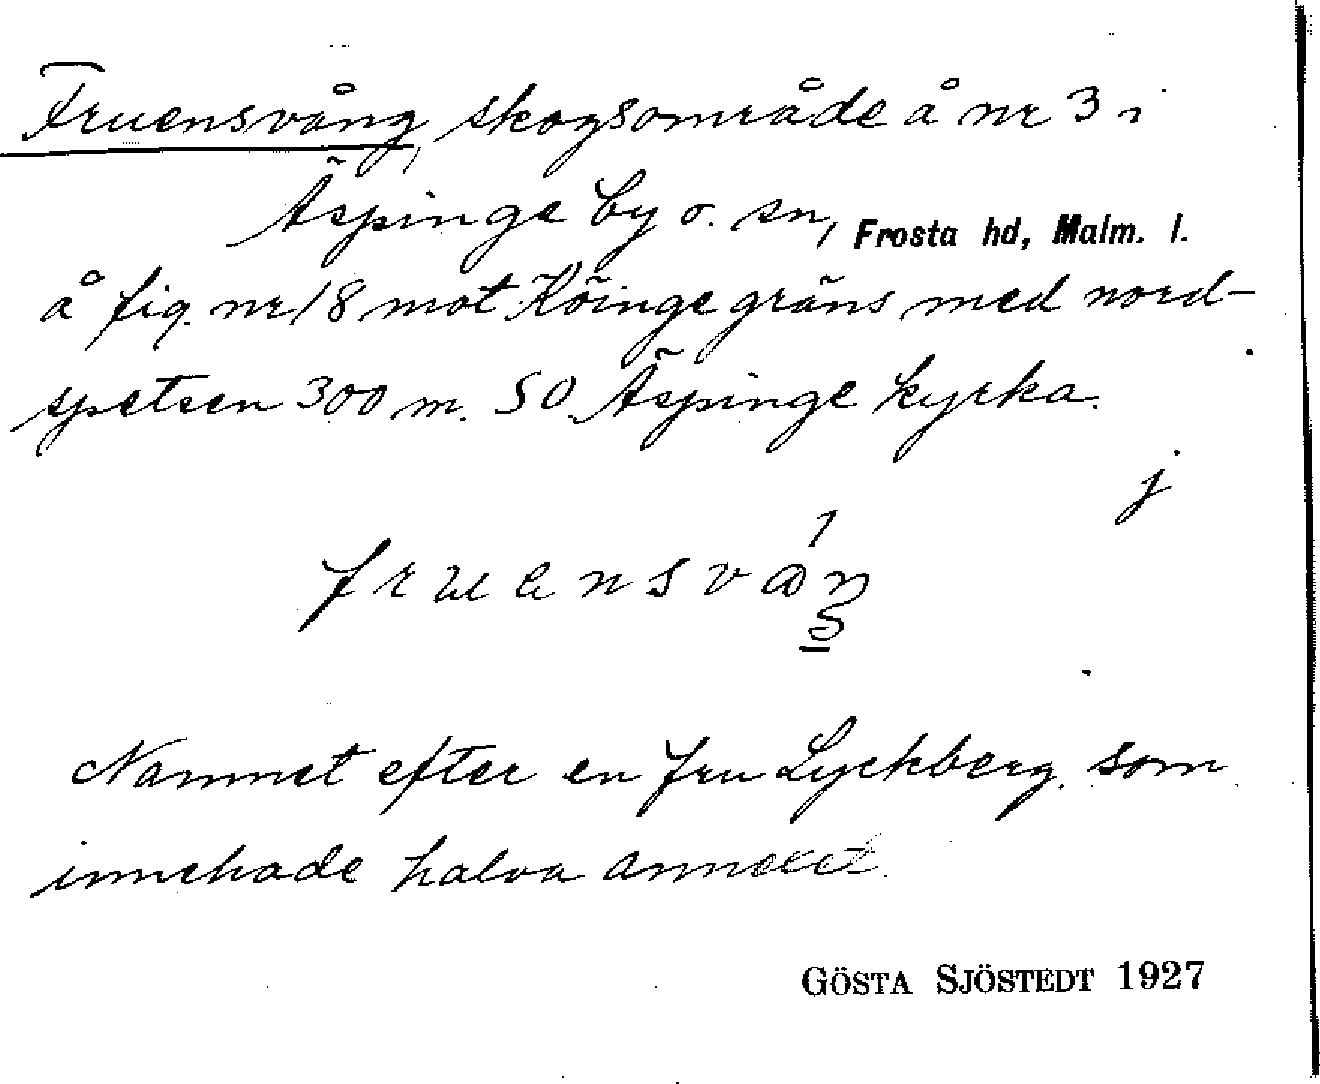 Fruensvång, skogsområde å nr 3 i
Äspinge by o. sn, Frosta hd, Malm. l.
å fig. nr 18 mot Köinge gräns med nord-
spetsen 300 m. SO Äspinge kyrka.
j
Namnet efter en fru Lyckberg, som
innehade halva annexet.
GÖSTA SJÖSTEDT 1927